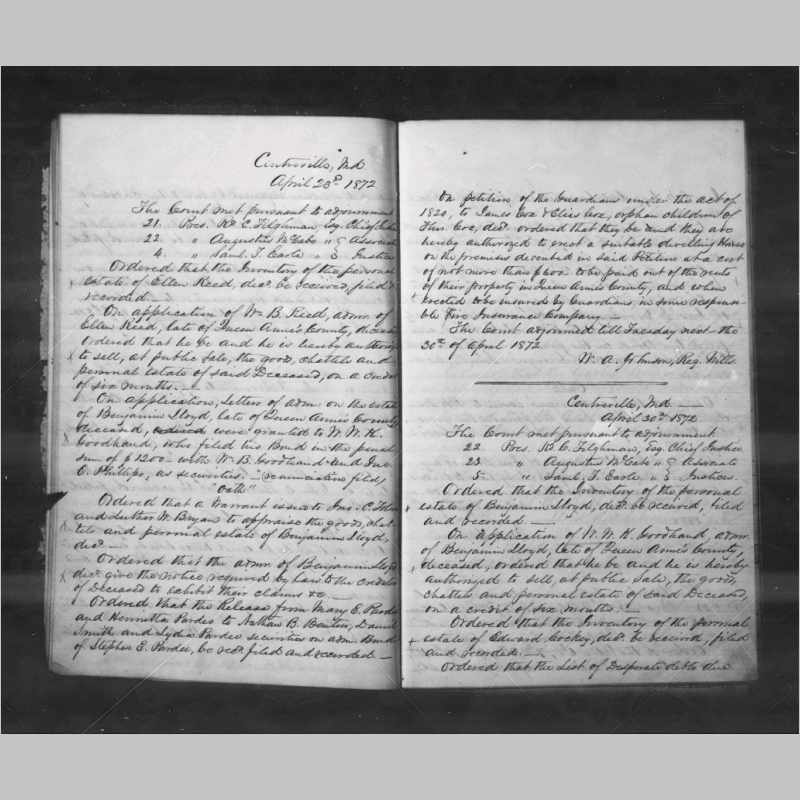 Centreville, Md.
April 23d 1872
The Court met pursuant to adjournment
21. Pres. Wm C. Tilghman, Esq. Chief
22. " Augustus McCabe " } Associate
4. " Saml. T. Earle " } Justices
Ordered that the Inventory of the personal
Estate of Ellen Reed, decd. be received, filed &
recorded. —
On application of Wm. B. Reed, admr. of
Ellen Reed, late of Queen Anne's County, deceased
Ordered that he be and he is hereby authorized
to sell, at public sale, the goods, chattels and
personal estate of said Deceased, on a credit
of six months. —
On application, Letters of adm. on the estate
of Benjamin Lloyd, late of Queen Anne's County
deceased, were granted to W. W. K.
Goodhand, who filed his Bond in the penal
sum of $1200 with Wm. B. Goodhand and Jno.
C. Phillips, as securities. — (renunciation filed)
"Oath"
Ordered that a Warrant issue to Jno. C.
and Luther W. Bryan to appraise the goods, chat-
tels and personal estate of Benjamin Lloyd,
decd. —
Ordered that the admr. of Benjamin Lloyd
decd. give the notice required by law to the creditors
of Deceased to exhibit their claims &c. —
Ordered that the Release from Mary E. Pardee
and Henrietta Pardee to Nathan B. Daniel
Smith and Lydia Pardee securities on adm. Bond
of Stephen E. Pardee, be recd. filed and recorded —
On petition of the Guardian under the act of
1820, to James Coe & Elias Coe, orphan children of
Thos. Coe, decd. ordered that they be and they are
hereby authorized to erect a suitable dwelling House
on the premises described in said Petition at a cost
of not more than to be paid out of the rents
of their property in Queen Anne's County, and when
erected to be insured by Guardians in some responsi-
ble Fire Insurance Company —
The Court adjourned till Tuesday next the
30th of April 1872
W. A. Johnson, Reg. Wills
Centreville, Md. —
April 30th 1872
The Court met pursuant to adjournment
22 Pres. Wm C. Tilghman, Esq. Chief Justice
23 " Augustus McCabe " } Associate
5 " Saml. T. Earle " } Justices.
Ordered that the Inventory of the personal
estate of Benjamin Lloyd, decd. be received, filed
and recorded. —
On application of W. W. K. Goodhand, admr.
of Benjamin Lloyd, late of Queen Anne's County,
deceased, ordered that he be and he is hereby
authorized to sell, at public sale, the goods,
chattels and personal estate of said Deceased,
on a credit of six months. —
Ordered that the Inventory of the personal
estate of Edward Cockey, decd. be received, filed
and recorded. —
Ordered that the List of Desperate debts due